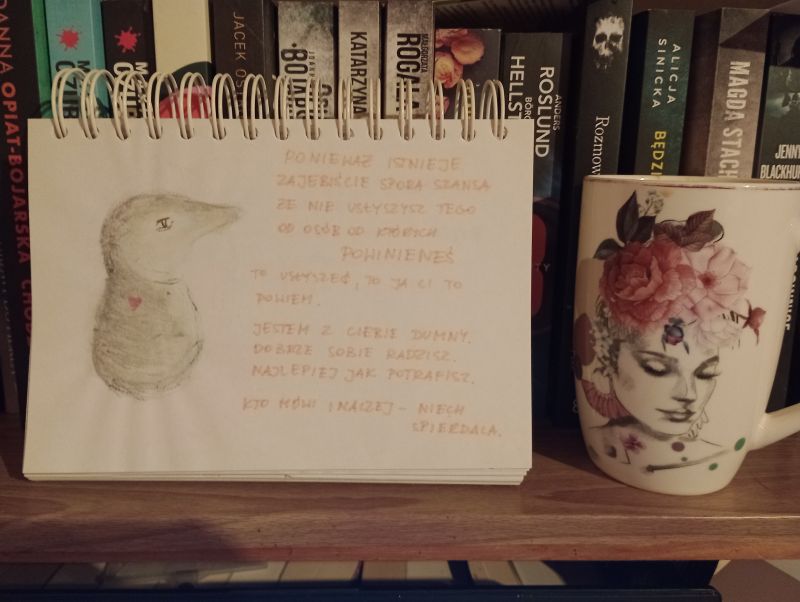 PONIEWAŻ ISTNIEJE
ZAJEBIŚCIE SPORA SZANSA
ŻE NIE USŁYSZYSZ TEGO
OD OSÓB OD KTÓRYCH
POWINIENEŚ
TO USŁYSZEĆ, TO JA CI TO
POWIEM.
JESTEM Z CIEBIE DUMNY.
DOBRZE SOBIE RADZISZ.
NAJLEPIEJ JAK POTRAFISZ.
KTO MÓWI INACZEJ - NIECH
SPIERDALA.
OPIAT-BOJARSKA
JACEK
KATARZYNA
MAŁGORZATA
ROGALA
ANDERS
ROSLUND
HELLST
Rozmow
ALICJA
SINICKA
BĘDZI
MAGDA STACH
JENNY
BLACKHU